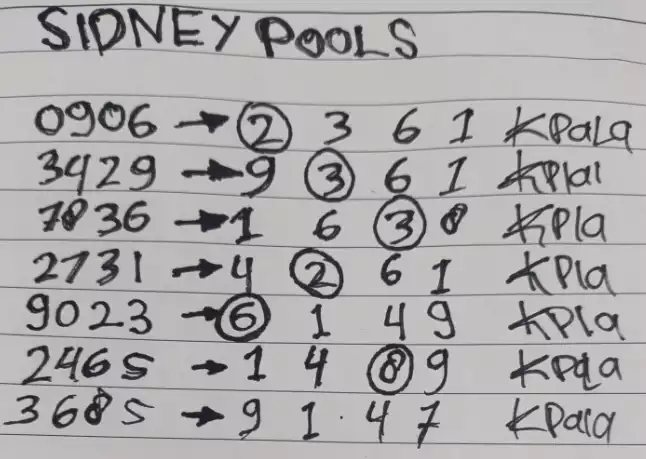 SIDNEY POOLS
0906 → 2 3 6 1 KPaLa
3429 → 9 3 6 1 KPlal
7836 → 1 6 3 8 KPla
2731 → 4 2 6 1 KPla
9023 → 6 1 4 9 KPla
2465 → 1 4 8 9 KPala
3685 → 9 1 · 4 7 KPala